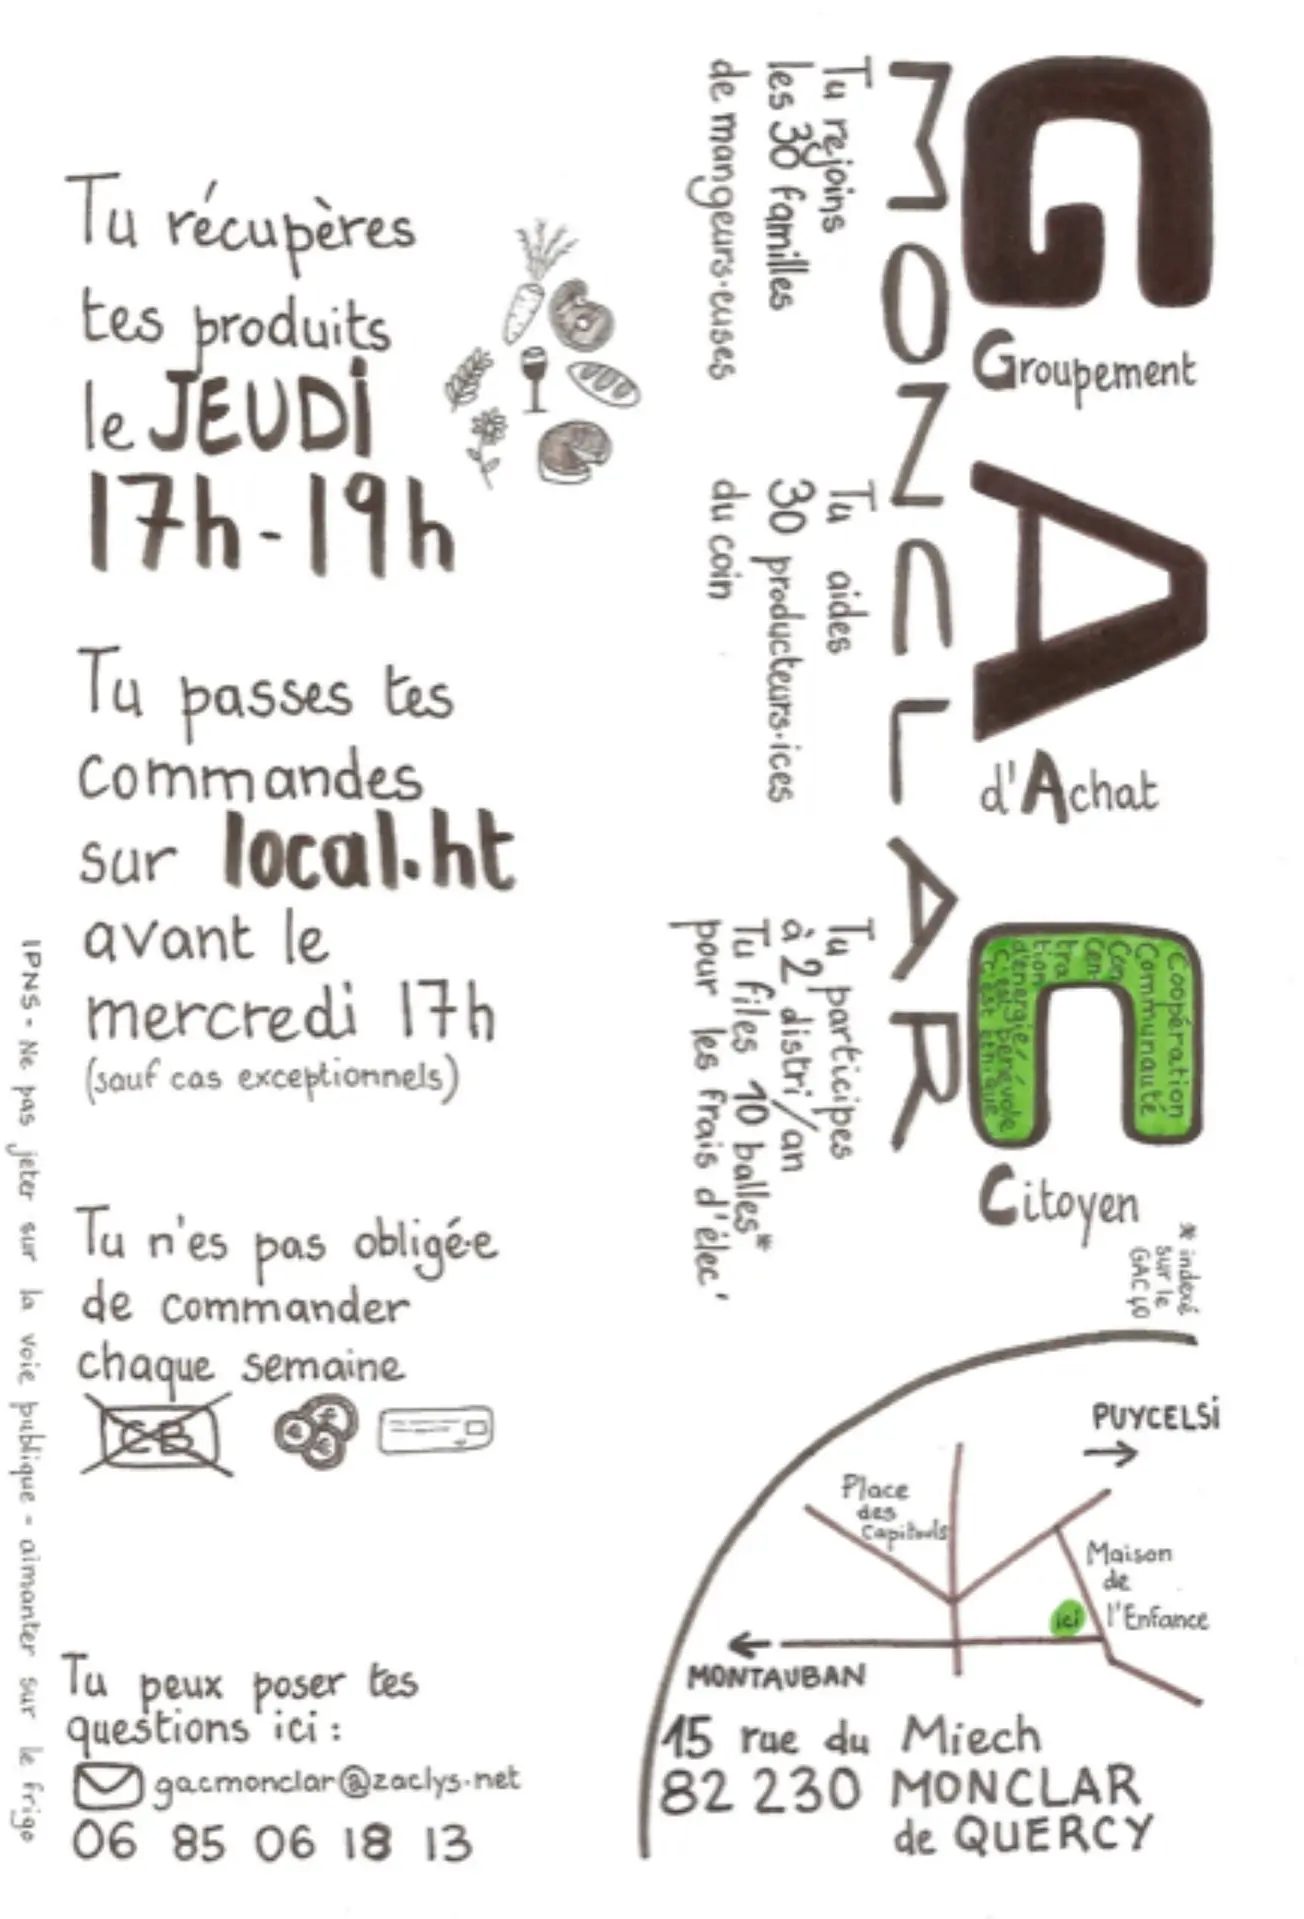 Tu récupères
tes produits
le JEUDI
17h-19h
Tu passes tes
commandes
sur local.ht
avant le
mercredi 17h
(sauf cas exceptionnels)
Tu n'es pas obligé·e
de commander
chaque semaine
CB
Tu peux poser tes
questions ici :
gacmonclar@zaclys.net
06 85 06 18 13
IPNS - Ne pas jeter sur la voie publique - aimanter sur le frigo
GAC
Groupement
d'Achat
Citoyen
MONCLAR
Tu rejoins
les 30 familles
de mangeurs·euses
Tu aides
30 producteurs·ices
du coin
Tu participes
à 2 distri/an
Tu files 10 balles*
pour les frais d'élec'
Coopération
Communauté
Con
Cen-
tra
tion
d'énergie/
C'est bénévole
C'est éthique
* indexé
sur le
GAC 40
PUYCELSI
Place
des
Capitouls
Maison
de
l'Enfance
ici
MONTAUBAN
15 rue du Miech
82 230 MONCLAR
de QUERCY